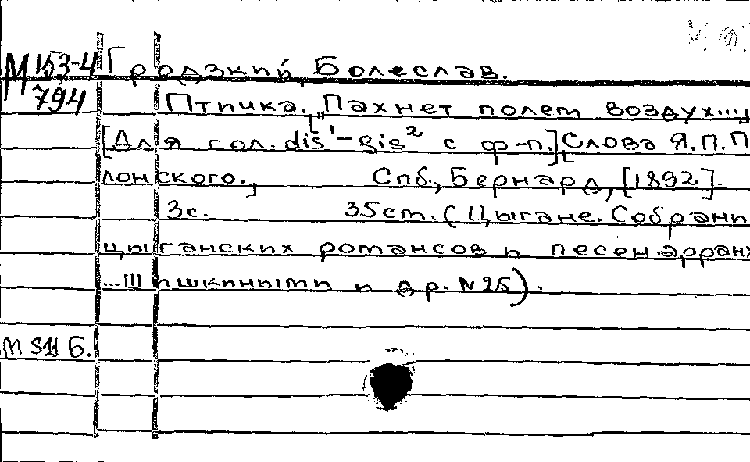 М 153-4 Гродзкий, Болеслав.
794 Птичка. "Пахнет полем воздух...["]
[Для гол. dis¹-gis² с ф-п.] Слова Я.П.П
лонского., Спб., Бернард, [1892].
3с. 35cm. (Цыгане. Собрани
цыганских романсов и песен арран
...Шишкиными и др. N 25).
М 31 Б.